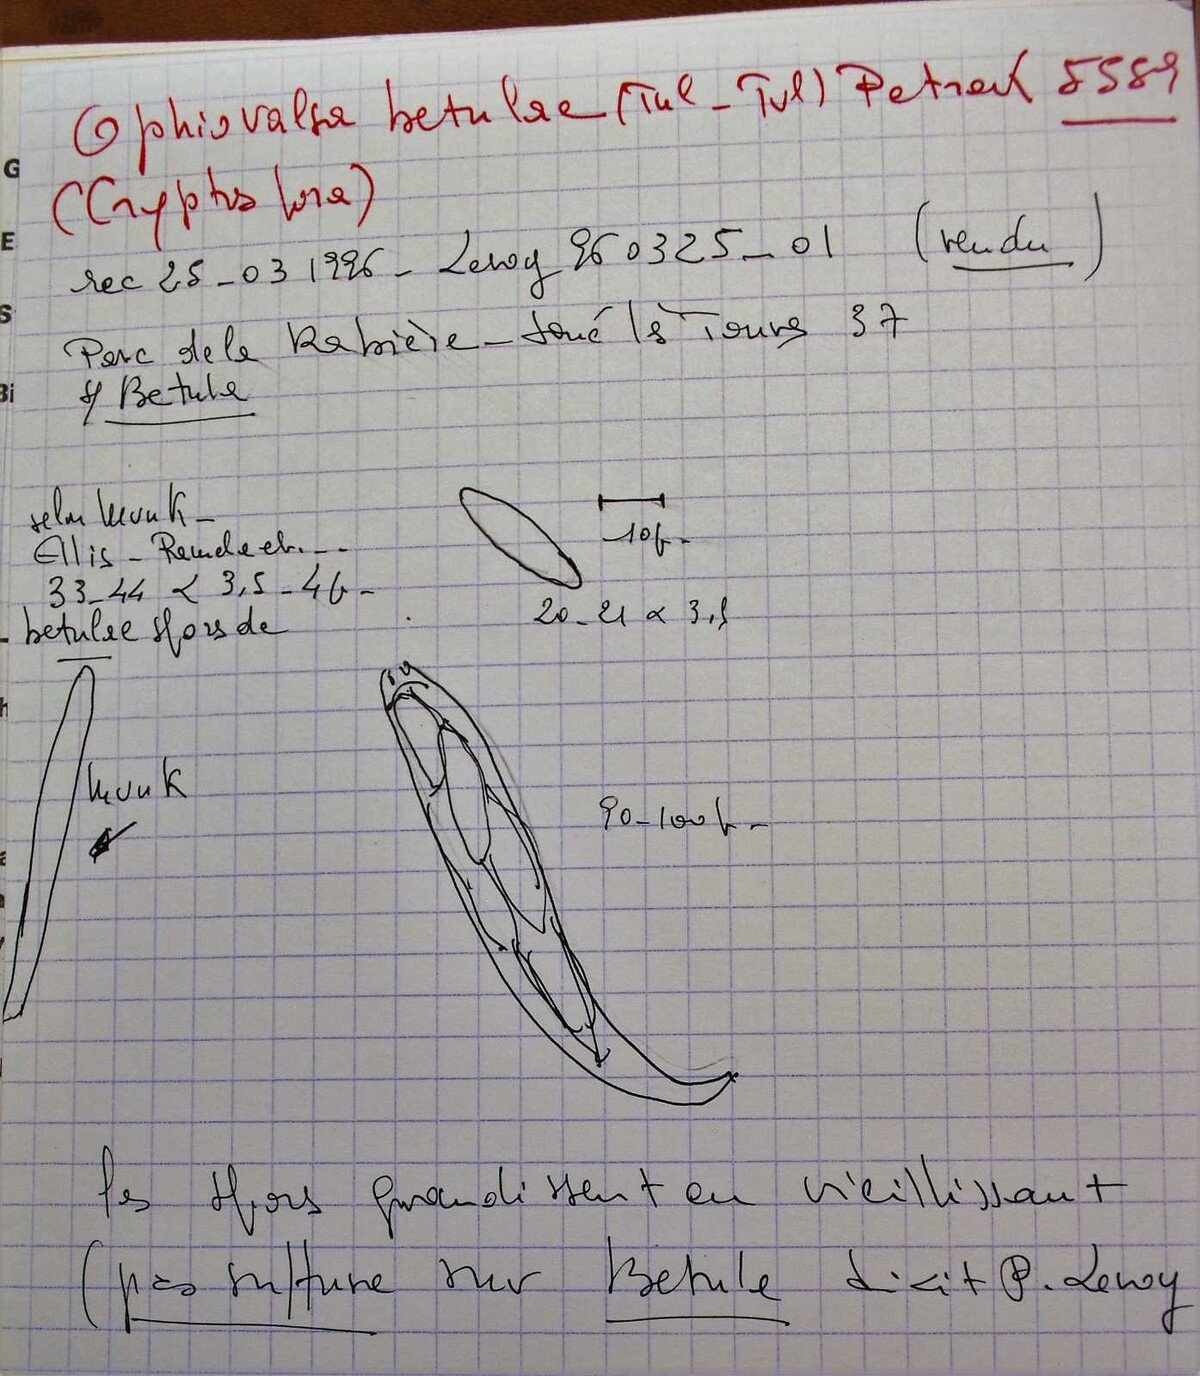 Ophiovalsa betulae (Tul - Tul) Petrak 5589
(Cryptospora)
rec 25-03 1996 - Leroy 960325-01 (rendu)
Parc de la Rabière - Joué lès Tours 37
s/ Betula
selon Munk -
Ellis -
33-44 x 3,5-4µ -
betulae spores de
10µ -
20-21 x 3,5
Munk
90-100µ -
les spores grandissent en vieillissant
(pas sur Betula dixit P. Leroy
G
E
S
Bi